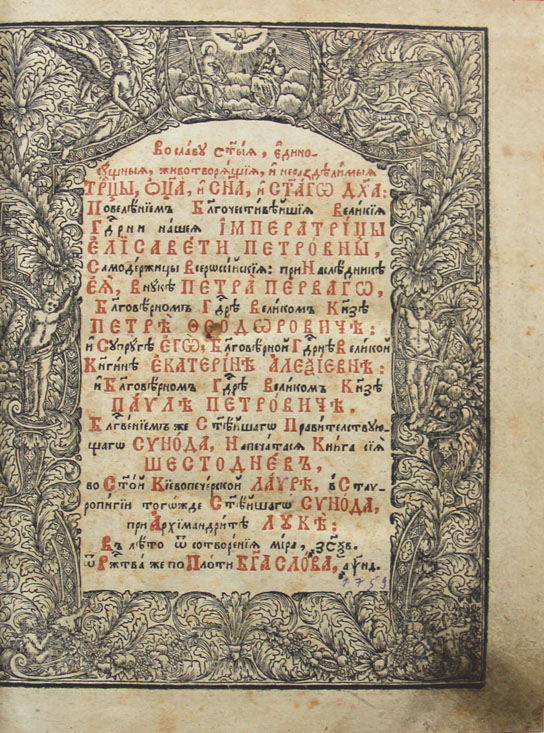 Во сла́ву ст҃ы́ѧ, є҆дино-
сꙋ́щныѧ, животворѧ́щїѧ, и҆ нераздѣли́мыѧ
ТР҃ЦЫ, Ѻ҆ЦА̀, и҆ СН҃А, и҆ СТ҃А́ГѠ ДХ҃А:
Повелѣ́нїемъ Бл҃гочести́вѣйшїѧ Вели́кїѧ
Гдⷭ҇рни нашеѧ ИМПЕРАТРІ́ЦЫ
Є҆ЛІСАВЕ́ТИ ПЕТРО́ВНЫ,
Самодержицы Всерѡссі́йскїѧ: при Наслѣ́дникѣ
Є҆Ѧ̀, Внꙋкѣ ПЕТРА ПЕРВАГѠ,
Бл҃говѣ́рномъ Гдⷭ҇рѣ Великомъ Кн҃зѣ
ПЕТРѢ̀ ѲЕО́ДѠРОВИЧѢ:
и҆ Сꙋпрꙋ́гѣ Є҆ГѠ̀, Бл҃говѣ́рной Гдⷭ҇рнѣ Вели́кой
Кн҃ги́нѣ ЕКАТЕРІ́НѢ АЛЕѮІЕВНѢ:
и҆ Бл҃говѣ́рномъ Гдⷭ҇рѣ Вели́комъ Кн҃зѣ
ПА́ѴЛѢ ПЕТРО́ВИЧѢ.
Бл҃гве́нїемъ же Ст҃ѣ́йшагѡ Прави́тельствꙋю-
щагѡ СѴНО́ДА, Напеча́тасѧ Кни́га сїѧ̀
ШЕСТОДНЕ́ВЪ,
во Ст҃о́й Кїевопече́рской ЛА́ѴРѢ, в̾ Стаѵ-
ропигїи тогѡ́жде Ст҃ѣ́йшагѡ СѴНО́ДА,
при Архїмандрі́тѣ ЛꙊКѢ̀:
Въ лѣ́то ѿ сотворе́нїѧ мі́ра,
ѿ Рж҃тва̀ же по Пло́ти БГ҃А СЛО́ВА,
1759